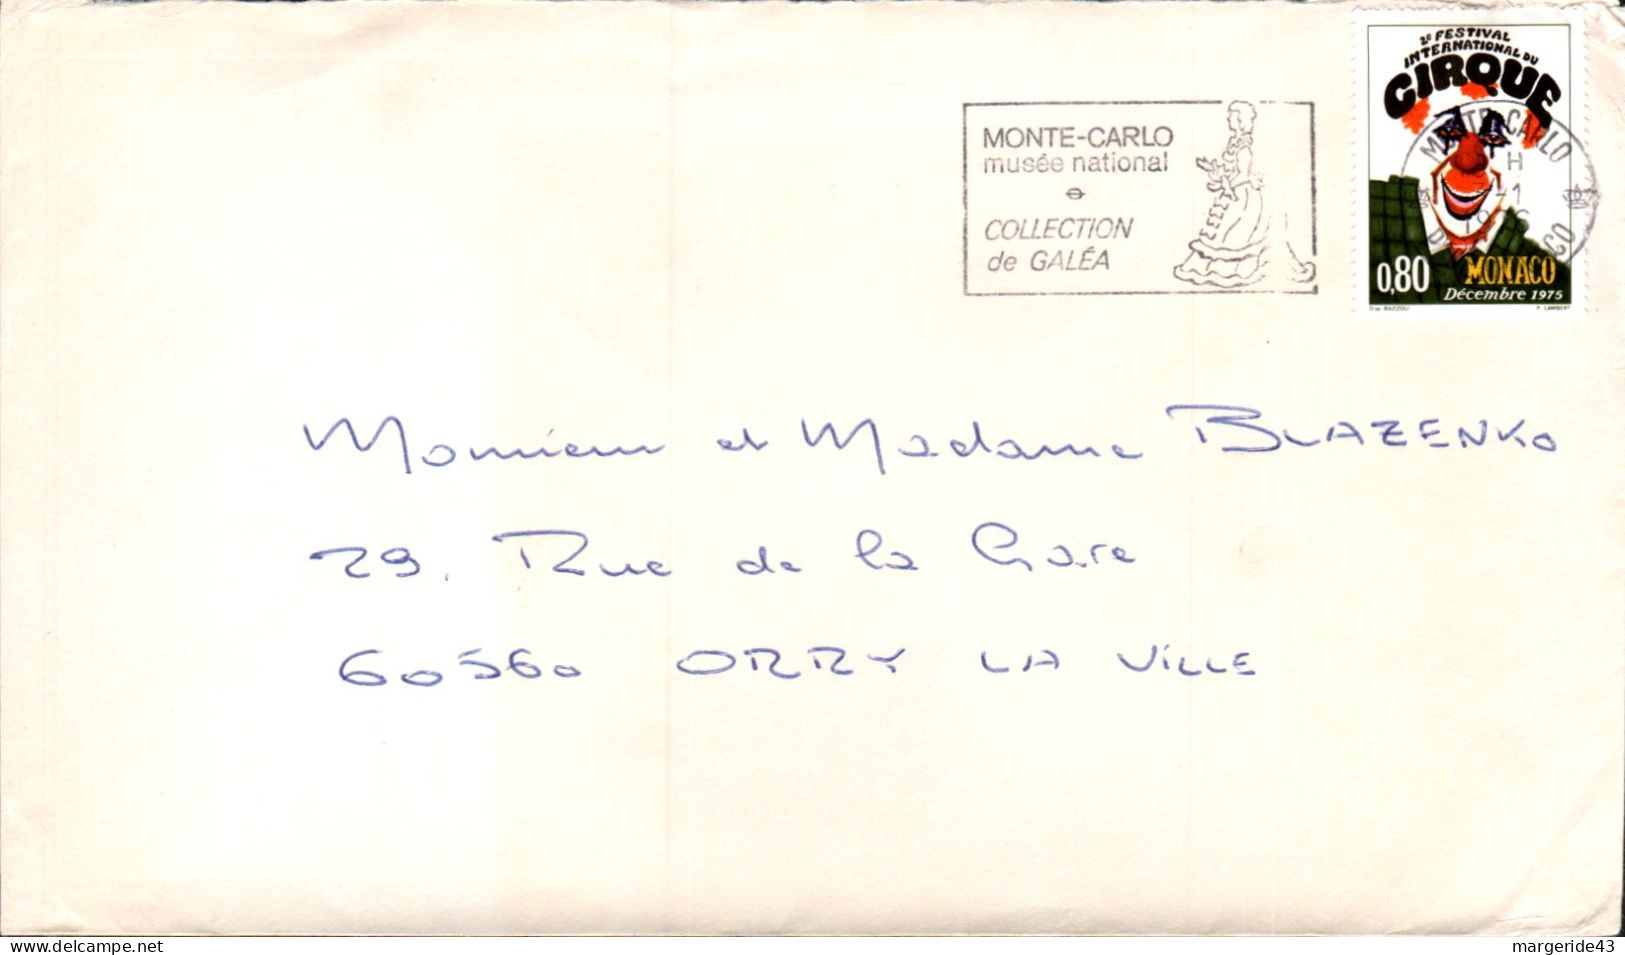 2e FESTIVAL
INTERNATIONAL DU
CIRQUE
MONTE-CARLO
musée national
COLLECTION
de GALÉA
MONTE-CARLO
H
-1
0,80
MONACO
Décembre 1975
P. LAMBERT
Monsieur et Madame BLAZENKO
29. Rue de la Gare
60560 ORRY LA ViLLE
www.delcampe.net
margeride43